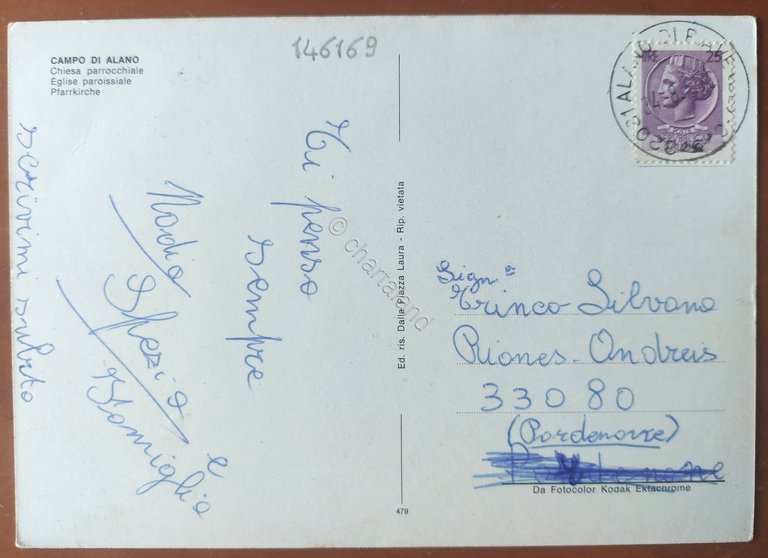 146169
CAMPO DI ALANO
Chiesa parrocchiale
Église paroissiale
Pfarrkirche
Ti penso
sempre
Nadia
Spezia
e
Famiglia
scrivimi subito
© chartaland
Ed. ris. Dalla Piazza Laura - Rip. vietata
479
LIRE 25
32031 ALANO DI PIAVE
Sign.a
Trinco Silvana
Riones. Andreis
33080
(Pordenone)
Da Fotocolor Kodak Ektachrome